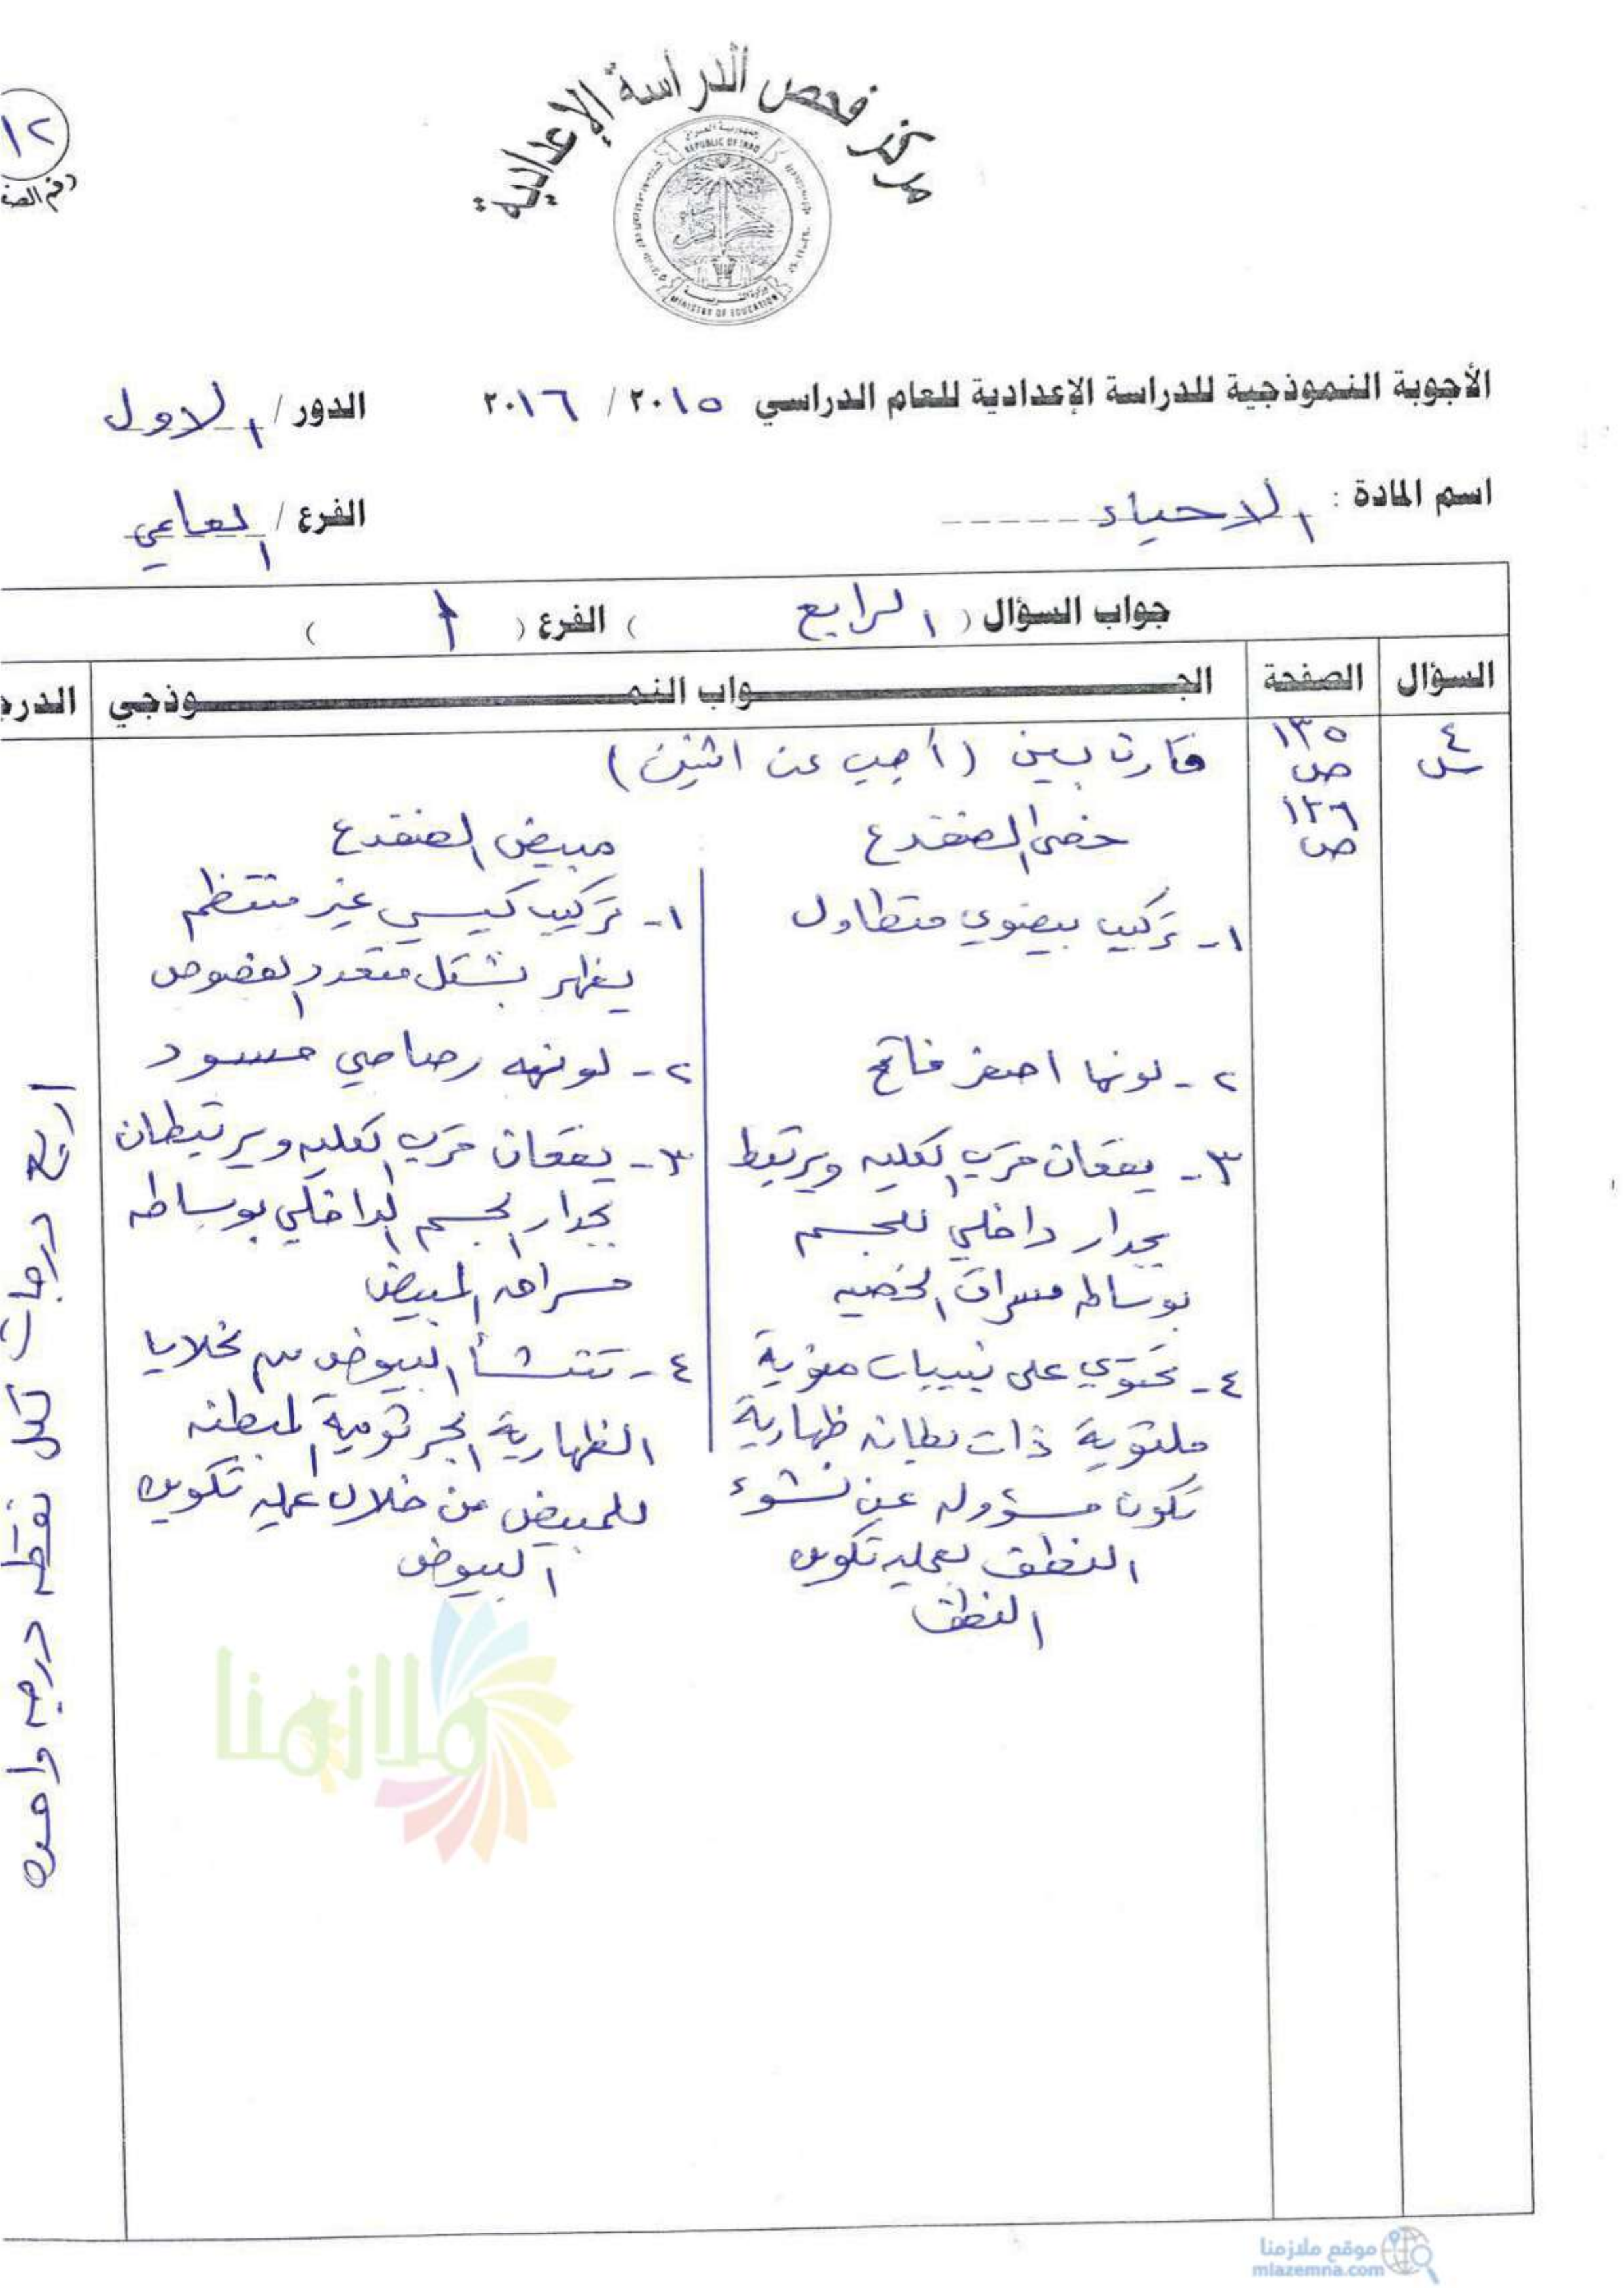 مركز فحص الدراسة الإعدادية
جمهورية العراق
REPUBLIC OF IRAQ
وزارة التربية
MINISTRY OF EDUCATION
١٢
رقم الصف
الأجوبة النموذجية للدراسة الإعدادية للعام الدراسي ٢٠١٥ / ٢٠١٦ الدور / الاول
اسم المادة : الاحياء الفرع / العلمي
جواب السؤال ( الرابع ) الفرع ( أ )
السؤال الصفحة الجـواب النمـوذجي الدرج
س٤
١٣٥
ص
١٣٦
ص
قارن بين (أجب عن اثنين)
خصى الضفدع
١- تركيب بيضوي متطاول
٢- لونها اصفر فاتح
٣- يقعان قرب الكليه ويرتبط
بجدار داخلي للجسم
بوساطه مسراق الخصيه
٤- تحتوي على نبيبات منوية
ملتوية ذات بطانه ظهارية
تكون مسؤوله عن نشوء
النطف بعمليه تكوين
النطف
مبيض الضفدع
١- تركيب كيسي غير منتظم
يظهر بشكل متعدد الفصوص
٢- لونه رصاصي مسود
٣- يقعان قرب الكليه ويرتبطان
بجدار الجسم الداخلي بوساطه
مسراق المبيض
٤- تنشأ البيوض من خلايا
الظهارية الجرثومية المبطنه
للمبيض من خلال عمليه تكوين
البيوض
اربع درجات لكل نقطه درجه واحده
ملازمنا
موقع ملازمنا
mlazemna.com